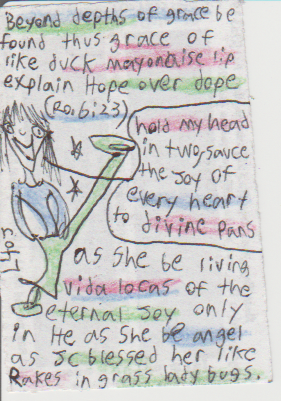 Beyond depths of grace be
found thus grace of
like duck mayonaise lip
explain Hope over dope
(Robi23)
hold my head
in two-sauce
the Joy of
every heart
to divine pans
as She be living
vida locas of the
eternal Joy only
in He as She be angel
as JC blessed her like
Rakes in grass lady bugs.